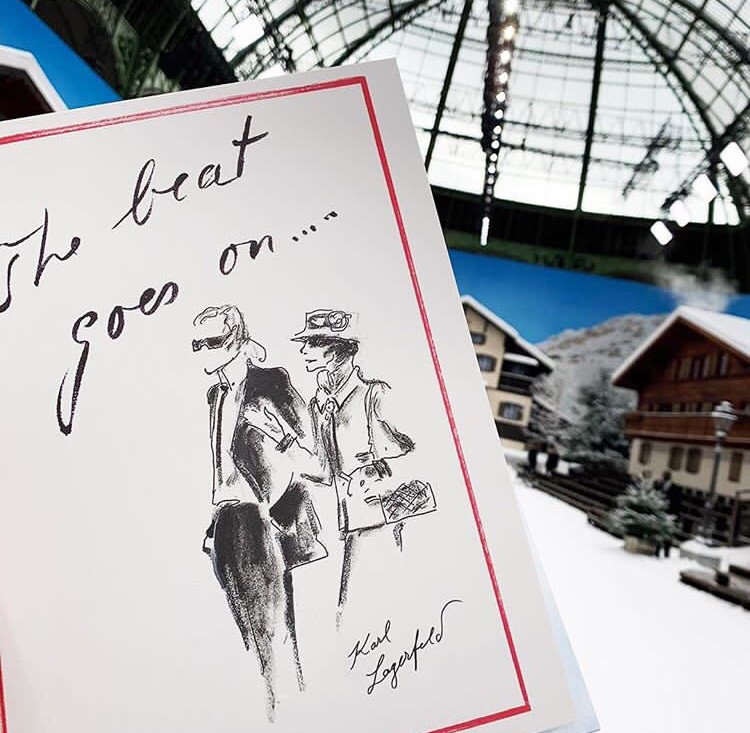 the beat
goes on.....
Karl
Lagerfeld